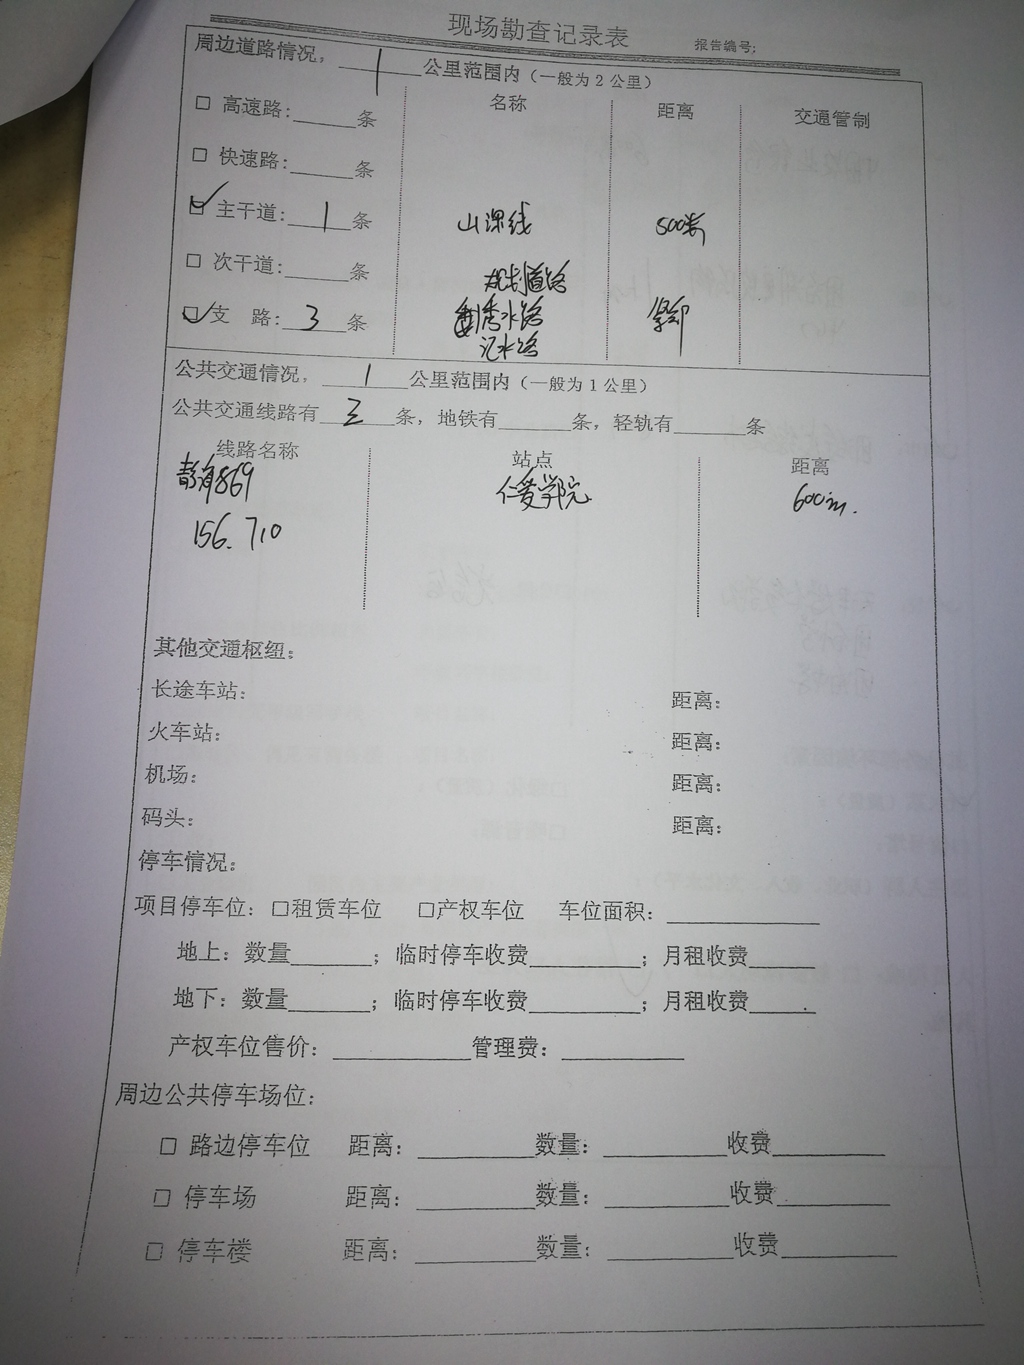 现场勘查记录表
报告编号:
周边道路情况，1公里范围内（一般为2公里）
名称 距离 交通管制
□ 高速路:______条
□ 快速路:______条
☑ 主干道:1条 山深线 500米
□ 次干道:______条
规划道路
☑ 支 路:3条 秀水路 紧邻
汇水路
公共交通情况，1公里范围内（一般为1公里）
公共交通线路有三条，地铁有______条，轻轨有______条
线路名称 站点 距离
静海869 仁爱学院 600m.
156. 710
其他交通枢纽:
长途车站: 距离:
火车站: 距离:
机场: 距离:
码头: 距离:
停车情况:
项目停车位: □租赁车位 □产权车位 车位面积:______
地上: 数量______; 临时停车收费______; 月租收费______
地下: 数量______; 临时停车收费______; 月租收费______
产权车位售价: ______管理费: ______
周边公共停车场位:
□ 路边停车位 距离: ______数量: ______收费______
□ 停车场 距离: ______数量: ______收费______
□ 停车楼 距离: ______数量: ______收费______